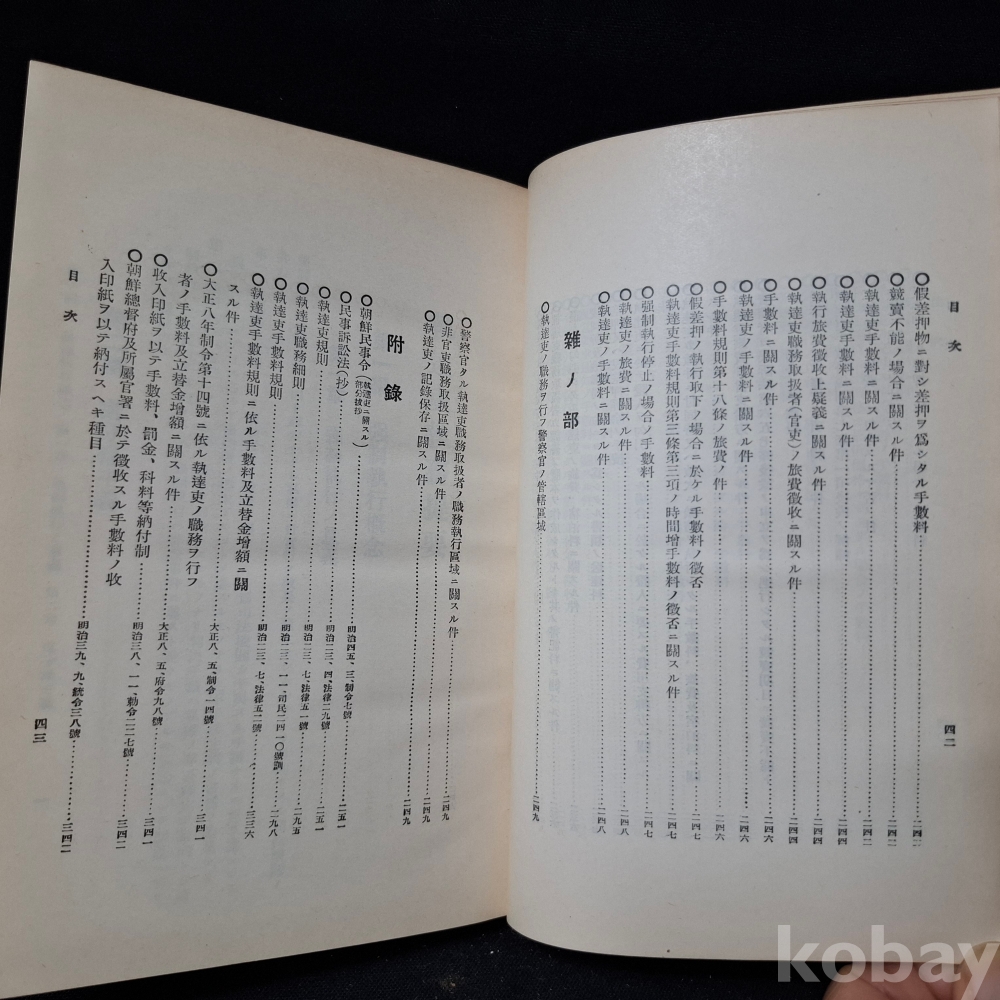 目次
○假差押物ニ對シ差押ヲ爲シタル手數料……二四二
○競賣不能ノ場合ニ關スル件……二四二
○執達吏ノ手數料ニ關スル件……二四二
○執達吏ノ手數料ニ關スル件……二四四
○執行旅費徵收上疑義ニ關スル件……二四四
○執達吏職務取扱者(官吏)ノ旅費徵收ニ關スル件……二四四
○手數料ニ關スル件……二四六
○執達吏ノ手數料ニ關スル件……二四六
○手數料規則第十八條ノ旅費ノ件……二四六
○假差押ノ執行取下ノ場合ニ於ケル手數料ノ徵否……二四七
○執達吏手數料規則第三條第三項ノ時間增手數料ノ徵否ニ關スル件……二四七
○强制執行停止ノ場合ノ手數料……二四七
○執達吏ノ旅費ニ關スル件……二四八
○執達吏ノ手數料ニ關スル件……二四八
雜ノ部
○執達吏ノ職務ヲ行フ警察官ノ管轄區域……二四九
四二
○警察官タル執達吏職務取扱者ノ職務執行區域ニ關スル件……二四九
○非官吏職務取扱區域ニ關スル件……二四九
○執達吏ノ記錄保存ニ關スル件……二四九
附錄
○朝鮮民事令(執達吏ニ關スル部分拔抄)……明治四五、三、制令七號……二五一
○民事訴訟法(抄)……明治二三、四、法律二九號……二五一
○執達吏規則……明治二三、七、法律五一號……二五一
○執達吏職務細則……明治二三、一一、司民二四一〇號訓……二九五
○執達吏手數料規則……明治二三、七、法律五二號……二九八
○執達吏手數料規則ニ依ル手數料及立替金增額ニ關
スル件……三三六
○大正八年制令第十四號ニ依ル執達吏ノ職務ヲ行フ
者ノ手數料及立替金增額ニ關スル件……大正八、五、制令一四號……三四一
○收入印紙ヲ以テ手數料、罰金、科料等納付制……大正八、五、府令九八號……三四一
○朝鮮總督府及所屬官署ニ於テ徵收スル手數料ノ收……明治三八、一一、勅令二二七號……三四二
入印紙ヲ以テ納付スヘキ種目……明治三九、九、統令三八號……三四二
目次
四三
kobay